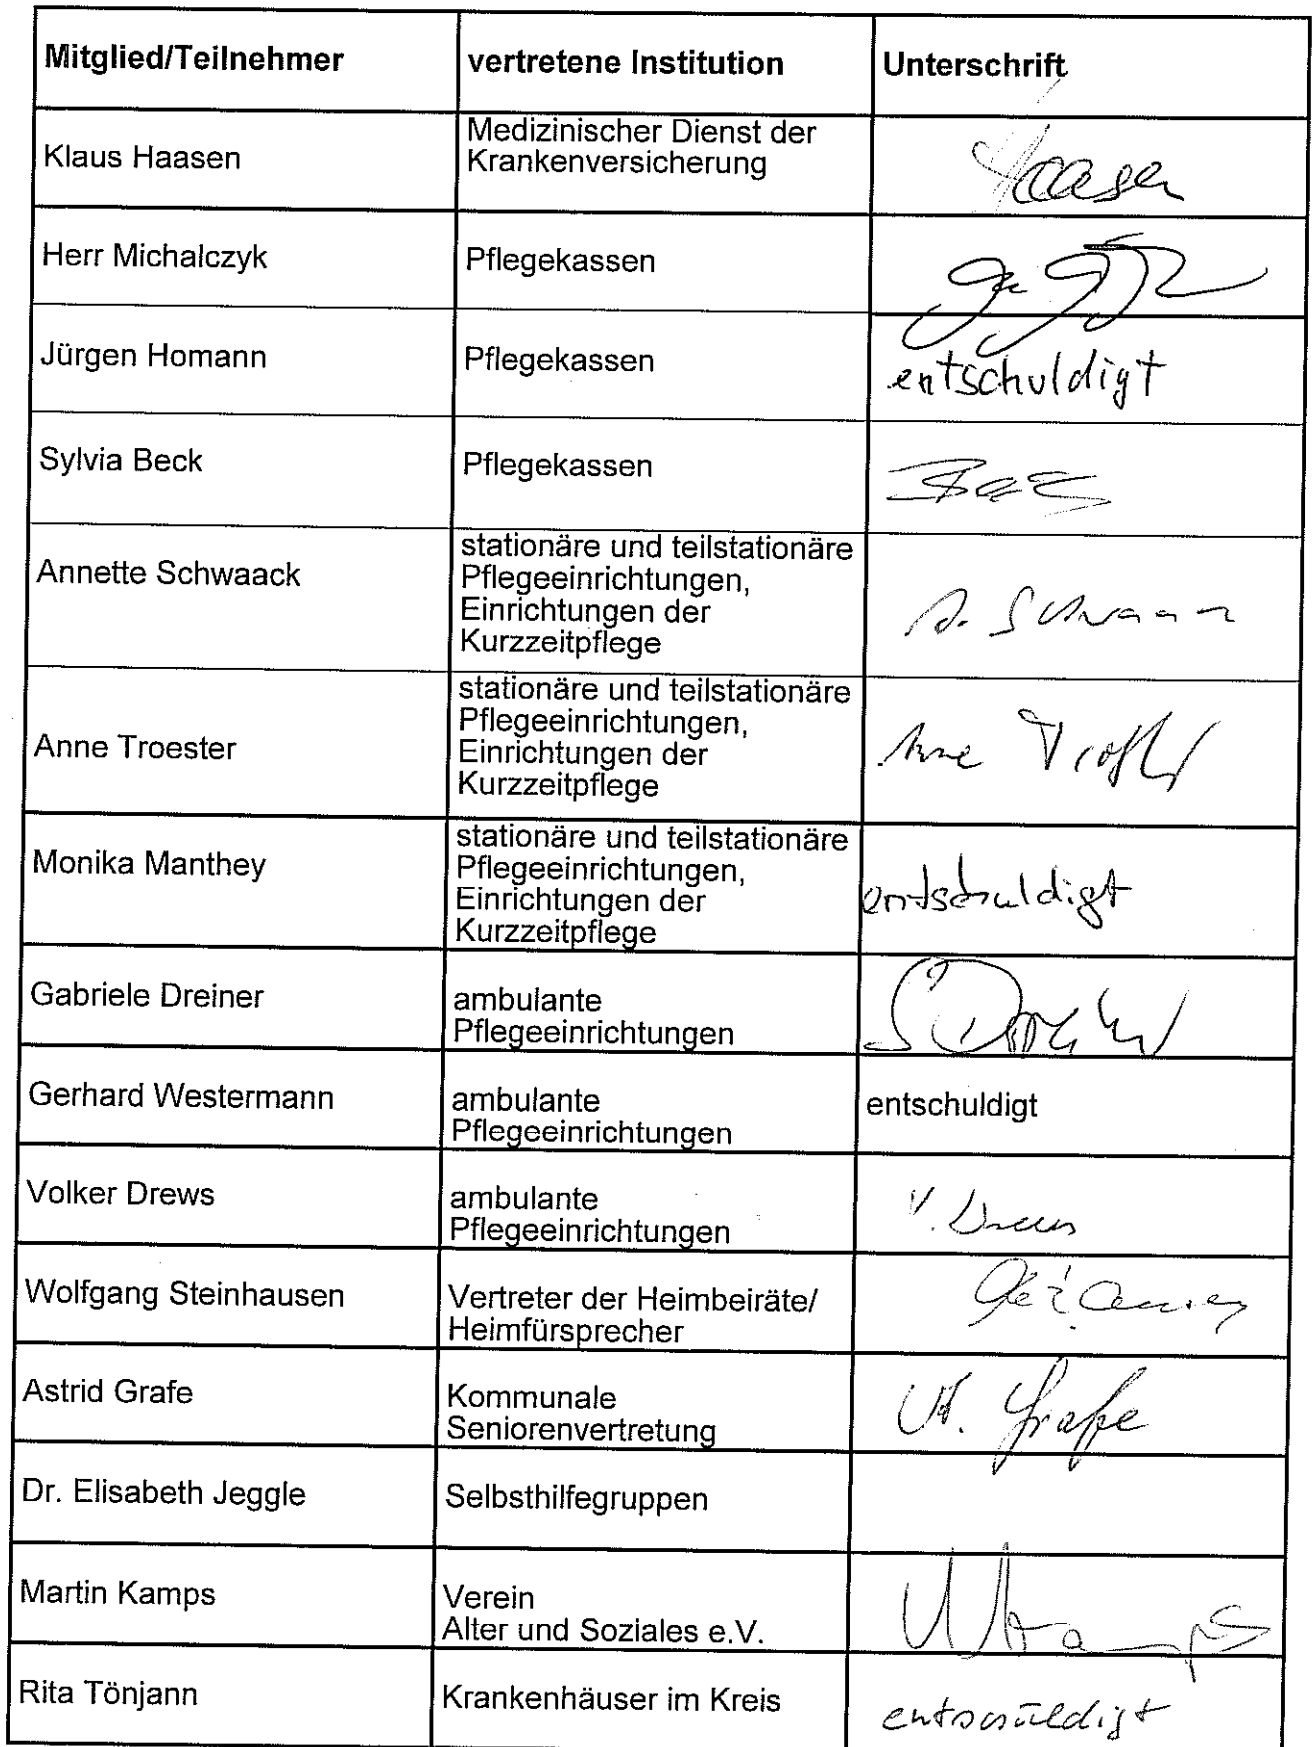 Mitglied/Teilnehmer vertretene Institution Unterschrift
Klaus Haasen Medizinischer Dienst der
Krankenversicherung Haasen
Herr Michalczyk Pflegekassen
Jürgen Homann Pflegekassen entschuldigt
Sylvia Beck Pflegekassen Beck
Annette Schwaack stationäre und teilstationäre
Pflegeeinrichtungen,
Einrichtungen der
Kurzzeitpflege
Anne Troester stationäre und teilstationäre
Pflegeeinrichtungen,
Einrichtungen der
Kurzzeitpflege Anne Troester
Monika Manthey stationäre und teilstationäre
Pflegeeinrichtungen,
Einrichtungen der
Kurzzeitpflege entschuldigt
Gabriele Dreiner ambulante
Pflegeeinrichtungen
Gerhard Westermann ambulante
Pflegeeinrichtungen entschuldigt
Volker Drews ambulante
Pflegeeinrichtungen V. Drews
Wolfgang Steinhausen Vertreter der Heimbeiräte/
Heimfürsprecher
Astrid Grafe Kommunale
Seniorenvertretung A. Grafe
Dr. Elisabeth Jeggle Selbsthilfegruppen
Martin Kamps Verein
Alter und Soziales e.V. M Kamps
Rita Tönjann Krankenhäuser im Kreis entschuldigt